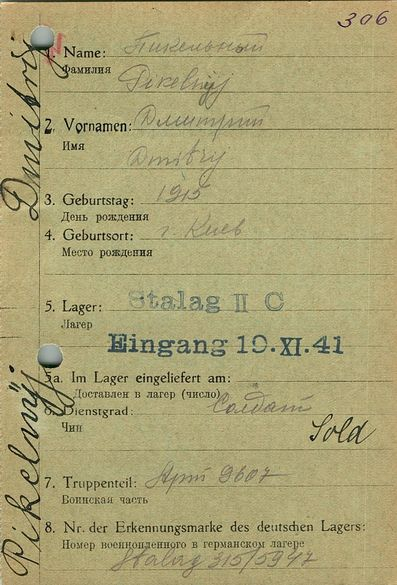 306
1. Name: Пикельный
Фамилия
Pikelnyj
2. Vornamen: Дмитрий
Имя
Dmitrij
3. Geburtstag: 1915
День рождения
4. Geburtsort: г. Киев
Место рождения
5. Lager: Stalag II C
Лагер
Eingang 19.XI.41
5a. Im Lager eingeliefert am:
Доставлен в лагер (число)
Dienstgrad: Солдат
Чин
Sold
7. Truppenteil: 9607
Воинская часть
8. Nr. der Erkennungsmarke des deutschen Lagers:
Номер военнопленного в германском лагере
Stalag 315/5947
Pikelnÿj Dmitrij